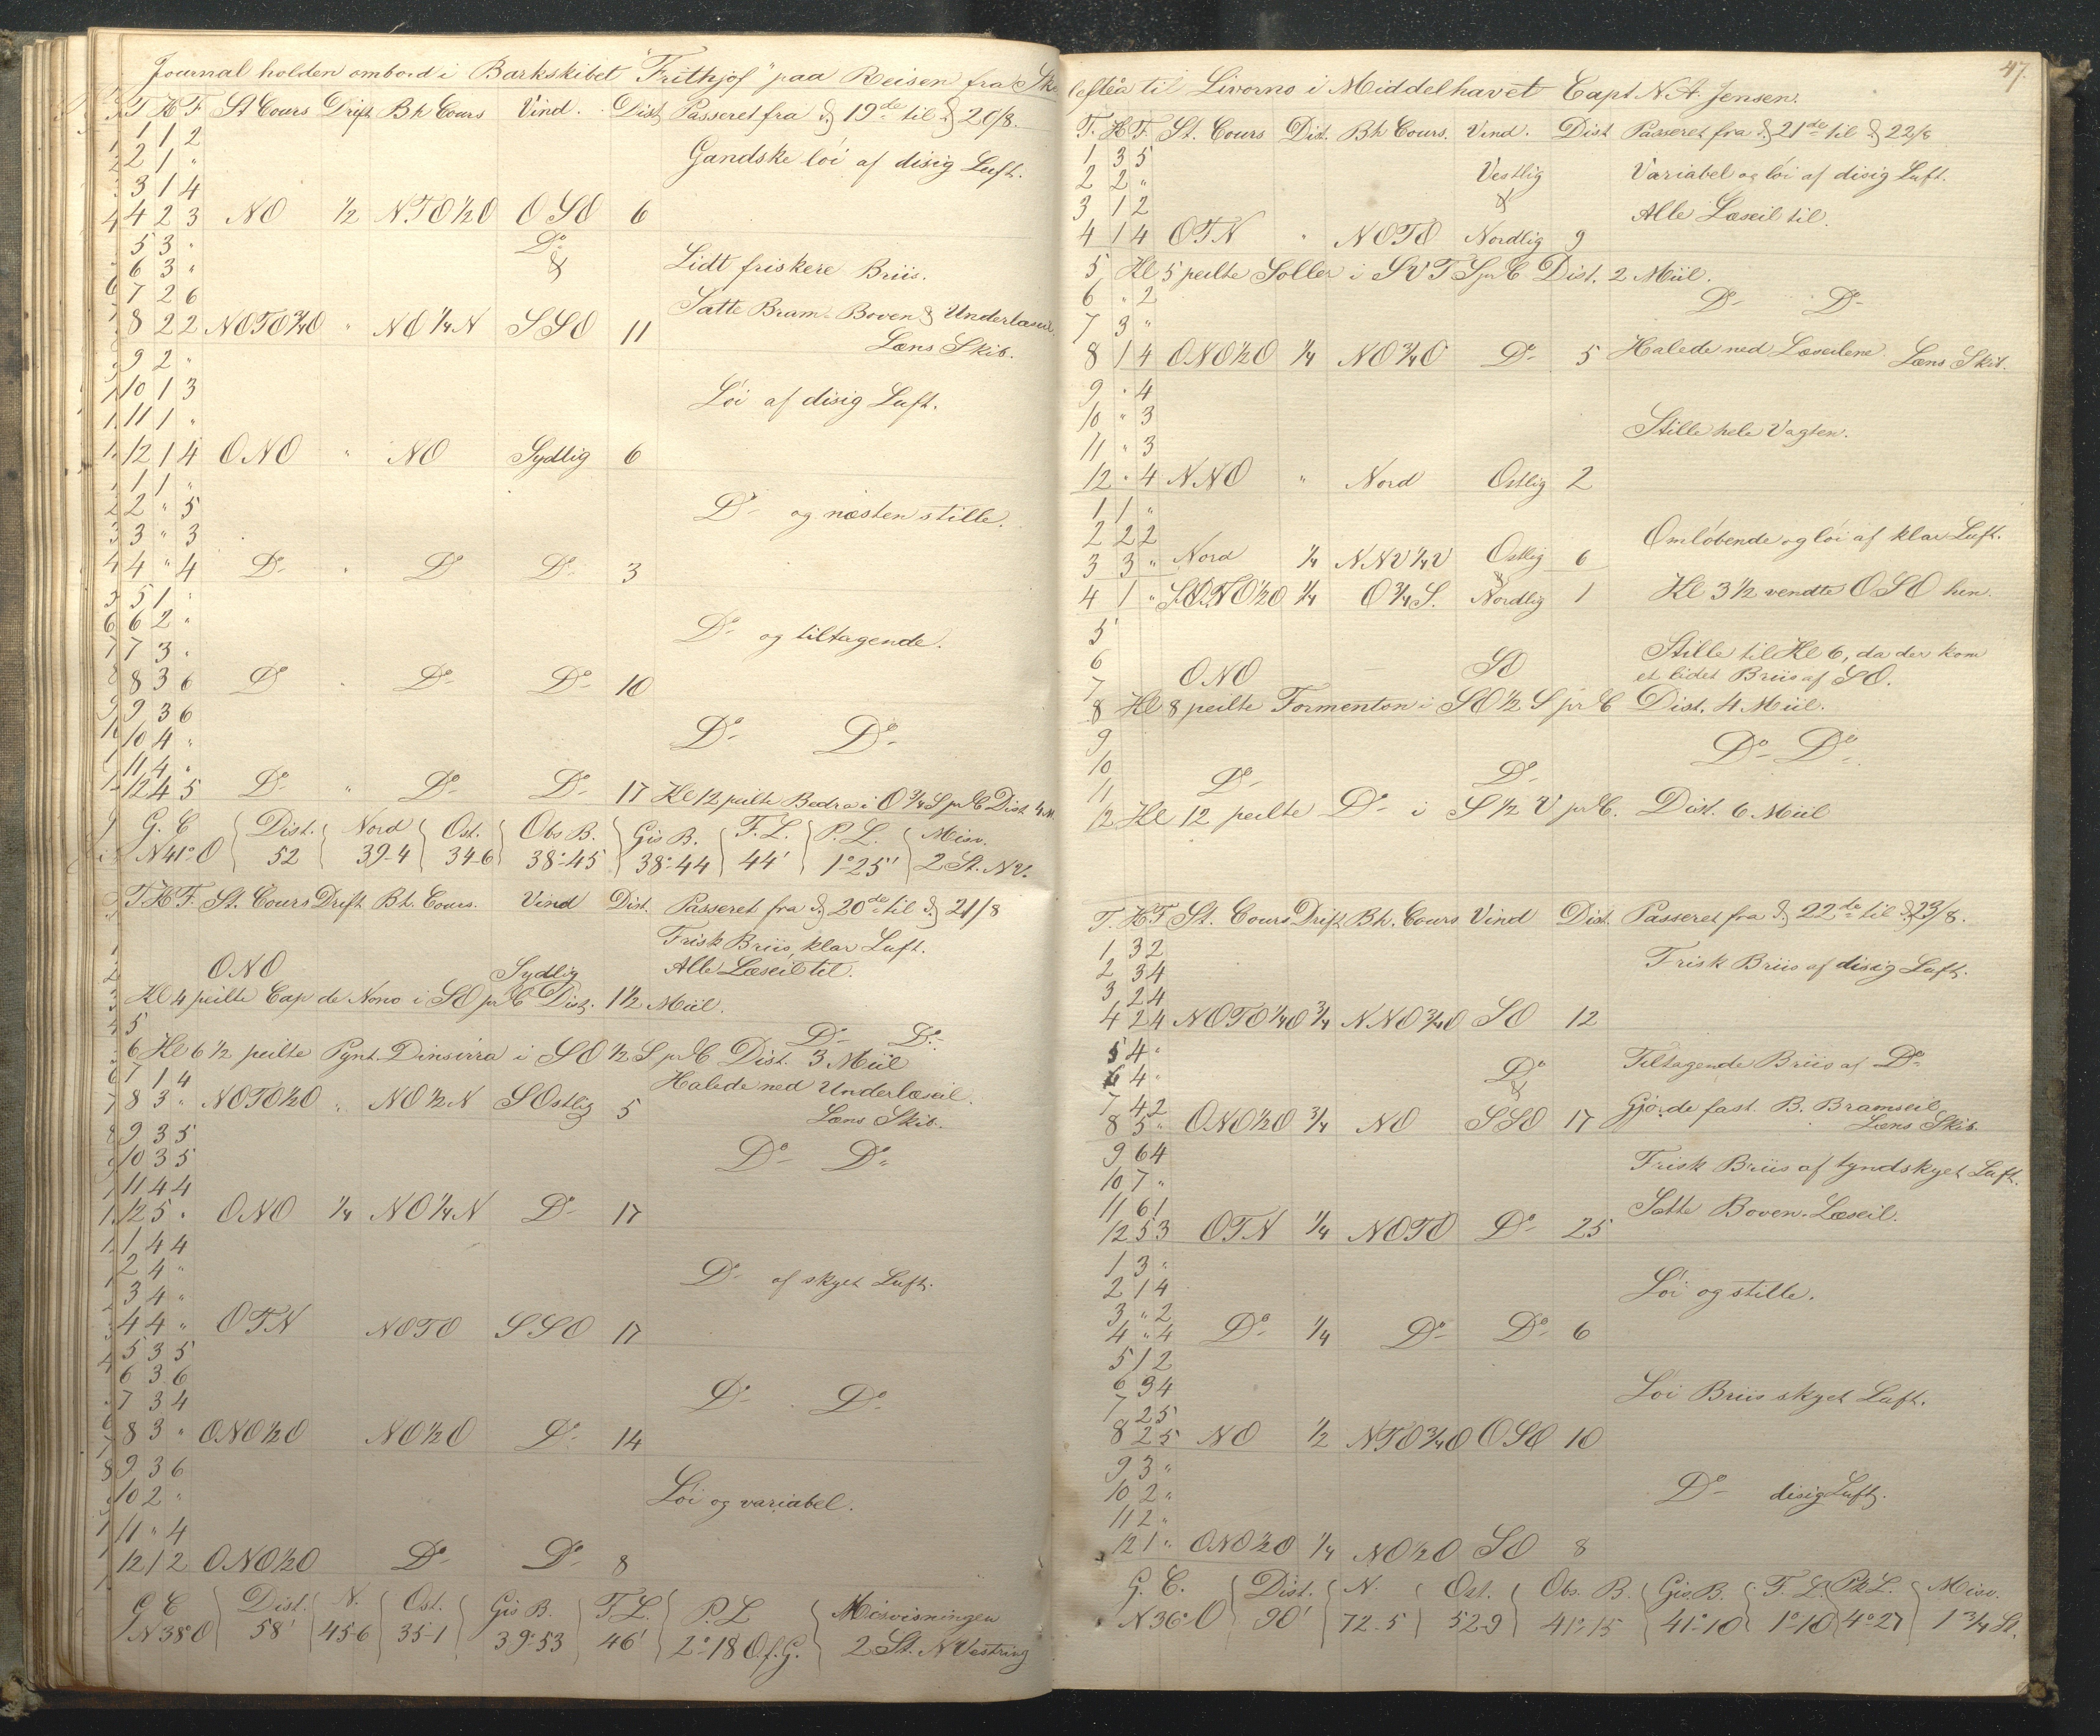 Journal holden ombord i Barkskibet "Frithjof" paa Reisen fra Ske
T. K F. St Cours Drift Bh Cours Vind. Dist. Passeret fra d. 19de til d. 20/8.
1 1 2
2 1 "
Gandske löi af disig Luft.
3 1 4
4 2 3 NO 1/2 NTO 1/2 O OSO 6
5 3 " Do
6 3 " & Lidt friskere Briis.
7 2 6
Satte Bram- Boven & Underlæseil.
8 2 2 NOTO 3/4 O " NO 1/4 N SSO 11
Læns Skib.
9 2 "
10 1 3
Löi af disig Luft.
11 1 "
12 1 4 ONO " NO Sydlig 6
1 1 "
2 " 5
Do og næsten stille.
3 " 3
4 " 4 Do " Do Do 3
5 1 "
6 2 "
Do og tiltagende.
7 3 "
8 3 6 Do " Do Do 10
9 3 6
10 4 "
Do Do
11 4 "
12 4 5 Do " Do Do 17 Kl 12 peilte Bedra i O 3/4 S pr C Dist 4 M.
G. C Dist. Nord Ost. Obs B. Gis B. F. L. P. L. Misv.
N 41° O 52 39-4 34-6 38°-45 38°-44 44' 1°25' 2 St. NV.
T. K F. St. Cours Drift Bh. Cours. Vind Dist. Passeret fra d. 20de til d. 21/8
Frisk Briis, klar Luft.
ONO Sydlig Alle Læseil til.
Kl 4 peilte Cap de Nono i SO pr C Dist. 1 1/2 Miil.
5 Do Do
6 Kl 6 1/2 peilte Pynt. Dinsirra i SO 1/2 S pr C Dist. 3 Miil
7 1 4 Halede ned Underlæseil.
8 3 " NOTO 1/2 O " NO 1/2 N SOstlig 5
Læns Skib.
9 3 5
10 3 5
Do Do
11 4 4
12 5 " ONO 1/4 NO 1/4 N Do 17
1 4 4
2 4 "
Do af skyet Luft.
3 4 "
4 4 " OTN NOTO SSO 17
5 3 5
6 3 6
7 3 4
Do Do
8 3 " ONO 1/2 O NO 1/2 O Do 14
9 3 6
10 2 "
Löi og variabel.
11 " 4
12 1 2 ONO 1/2 O Do Do 8
G C Dist. N. Ost. Gis B. F L. P. L Misvisningen
N 38° O 58' 45-6 35-1 39°-53 46' 2°-18 O. f. G. 2 St. NVestring
47.
lefteå til Livorno i Middelhavet Capt N. A. Jensen.
T. K F. St. Cours Dist. Bh Cours. Vind. Dist Passeret fra d. 21de til d. 22/8
1 3 5
2 2 " Vestlig Variabel og löi af disig Luft.
3 1 2 & Alle Læseil til.
4 1 4 OTN " NOTO Nordlig 9
5 Kl 5 peilte Soller i SVTS pr C Dist. 2 Miil.
6 " 2 Do Do
7 3 "
8 1 4 ONO 1/2 O 1/4 NO 3/4 O Do 5 Halede ned Læseilene. Læns Skib.
9 " 4
10 " 3
Stille hele Vagten.
11 " 3
12 " 4 NNO " Nord Ostlig 2
1 1 "
2 2 2
Omlöbende og löi af klar Luft.
3 3 " Nord 1/4 NNV 1/4 V Ostlig 6
&
4 1 " 1/2 O 1/4 O 3/4 S. Nordlig 1 Kl 3 1/2 vendte OSO hen.
5
6 Stille til Kl 6, da der kom
7 ONO SO et lidet Briis af SO.
8 Kl 8 peilte Formenton i SO 1/2 S pr C Dist. 4 Miil.
9
10 Do Do
11 Do Do
12 Kl 12 peilte Do i S 1/2 V pr C. Dist. 6 Miil
T. K F St. Cours Drift Bh. Cours Vind Dist. Passeret fra d. 22de til d. 23/8.
1 3 2
2 3 4
Frisk Briis af disig Luft.
3 2 4
4 2 4 NOTO 1/4 O 3/4 NNO 3/4 O SO 12
5 4 "
6 4 " Do Tiltagende Briis af Do
7 4 2 & Gjorde fast B. Bramseil
8 5 " ONO 1/2 O 3/4 NO SSO 17
Læns Skib.
9 6 4
10 7 "
Frisk Briis af tyndskyet Luft.
11 6 1
Satte Boven-Læseil.
12 5 3 OTN 1/4 NOTO Do 25
1 3 "
2 1 4
Löi og stille.
3 " 2
4 " 4 Do 1/4 Do Do 6
5 1 2
6 3 4
Löi Briis skyet Luft.
7 2 5
8 2 5 NO 1/2 NTO 3/4 O OSO 10
9 3 "
10 2 "
Do disig Luft.
11 2 "
12 1 " ONO 1/2 O 1/4 NO 1/2 O SO 8
G. C. Dist. N. Ost. Obs. B. Gis B. F. L. Pt L. Misv.
N 36° O 90' 72-5 52-9 41°-15 41°-10 1°10 4°27 1 3/4 St.